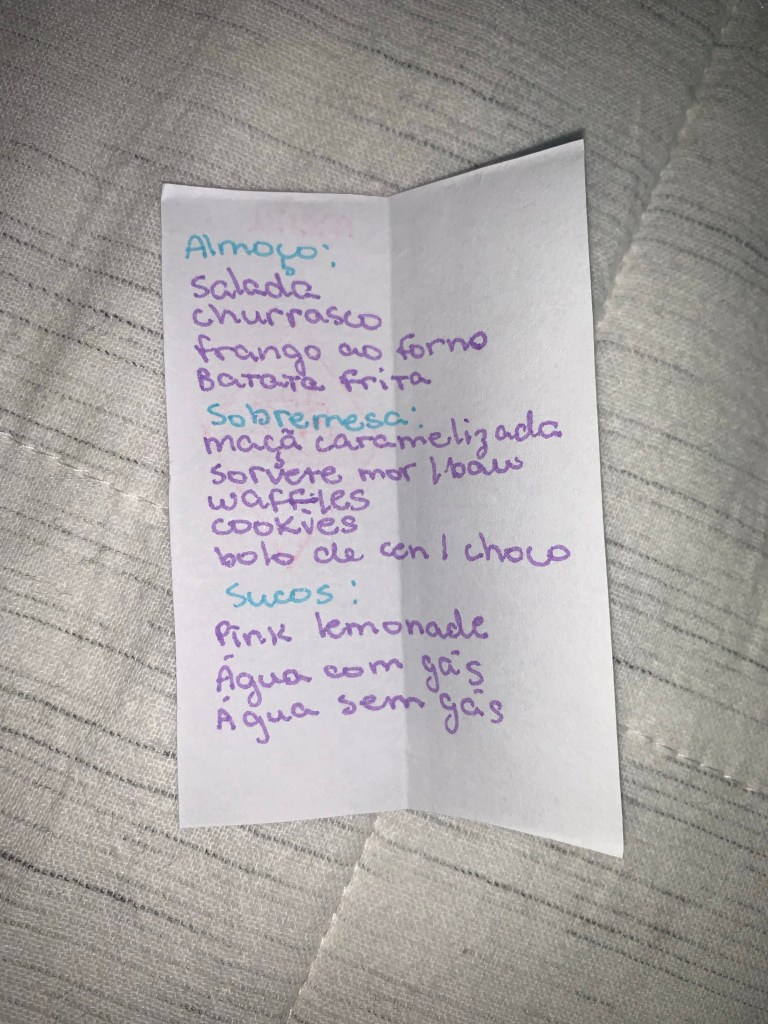 Almoço:
salada
churrasco
frango ao forno
Batata frita
Sobremesa:
maçã caramelizada
sorvete mor/bau
waffles
cookies
bolo de cen/choco
Sucos:
Pink lemonade
Água com gás
Água sem gás